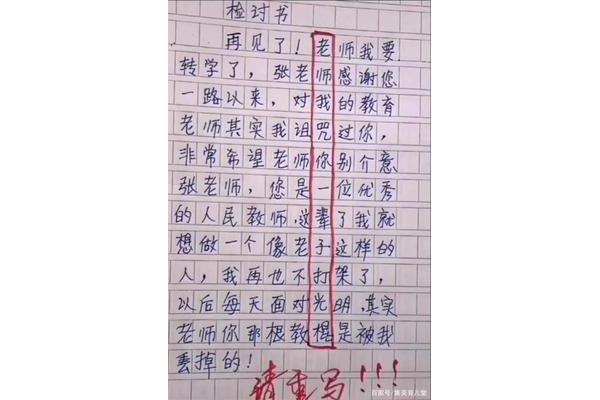 检讨书
再见了！老师我要
转学了，张老师感谢您
一路以来，对我的教育
老师其实我诅咒过你，
非常希望老师你别介意
张老师，您是一位优秀
的人民教师，这辈了我就
想做一个像老子这样的
人，我再也不打架了，
以后每天面对光明，其实
老师你那根教棍是被我
丢掉的！
请重写！！！
百家号/集英育儿堂